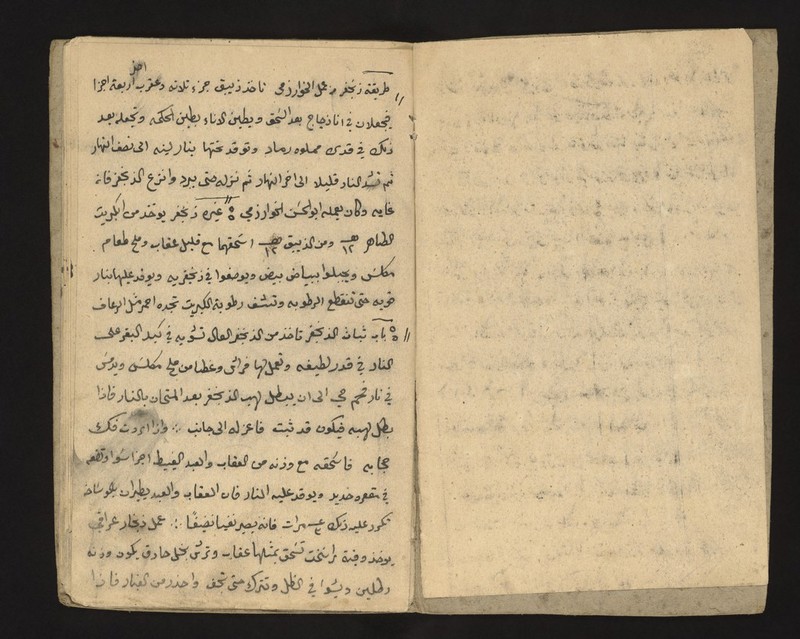 اخر
طريقة زنجفر من عمل الخوارزمي تاخذ زيبق جزء ثلاثه وعقرب اربعة اجزا
يجعلان في انا زجاج بعد السحق ويطين الاناء بطين الحكمه وتجعله بعد
ذلك في قدر مملوه رماد وتوقد تحتها بنار لينه الى نصف النهار
ثم تشد النار قليلا الى اخر النهار ثم نزله حتى يبرد وانزع الزنجفر فانه
غايه وكان يعمله ابو الحسن الخوارزمي غيره زنجفر يوخذ من الكبريت
الطاهر ١٢ ومن الزيبق ١٢ اسحقهما مع قليل عقاب وملح طعام
مكلس ويجبلوا ببياض بيض ويوضعوا في زنجفريه ويوقد عليها بنار
قويه حتى تنقطع الرطوبه وتنشف رطوبة الكبريت تجده احمر مثل الرعاف
بابه ثبات الزنجفر تاخذ من الزنجفر العال تشويه في كبد البقر على
النار في قدر لطيفه وتعمل لها فراش وغطا من ملح مكلس ويدس
في نار فحم حي الى ان يبطل لهب الزنجفر بعد امتحان بالنار فاذا
بطل لهبه فيكون قد ثبت فاعزله الى جانب واذا اردت فك
حجابه فاسحقه مع وزنه من العقاب والعبد اجزا سوا وتضعه
في مقعره حديد ويوقد عليه النار فان العقاب والعبد يطيران
تكرر عليه ذلك مرات فانه يصير نقيا نضيفا عمل زنجار عراقي
يوخذ وقية براسخت تسحق بمثلها عقاب وترش بخل حادق يكون وزنه
رطلين ويشوا في الظل وتترك حتى تجف واحذر من الغبار فاذا